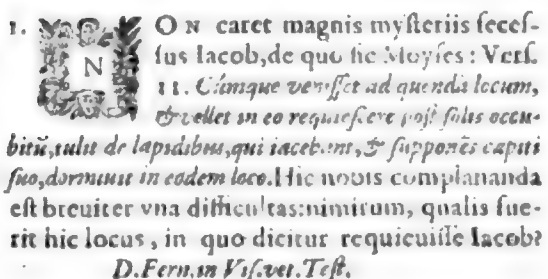 1. NON caret magnis myſteriis ſeceſ-
ſus Iacob, de quo ſic Moyſes: Verſ.
11. Cùmque veniſſet ad quendā locum,
& vellet in eo requieſcere poſt ſolis occu-
bitū, tulit de lapidibus, qui iacebant, & ſupponēs capiti
ſuo, dormiuit in eodem loco. Hic nobis complananda
eſt breuiter vna difficultas: nimirum, qualis fue-
rit hic locus, in quo dicitur requieuiſſe Iacob?
D. Fern. in Viſ. vet. Teſt.